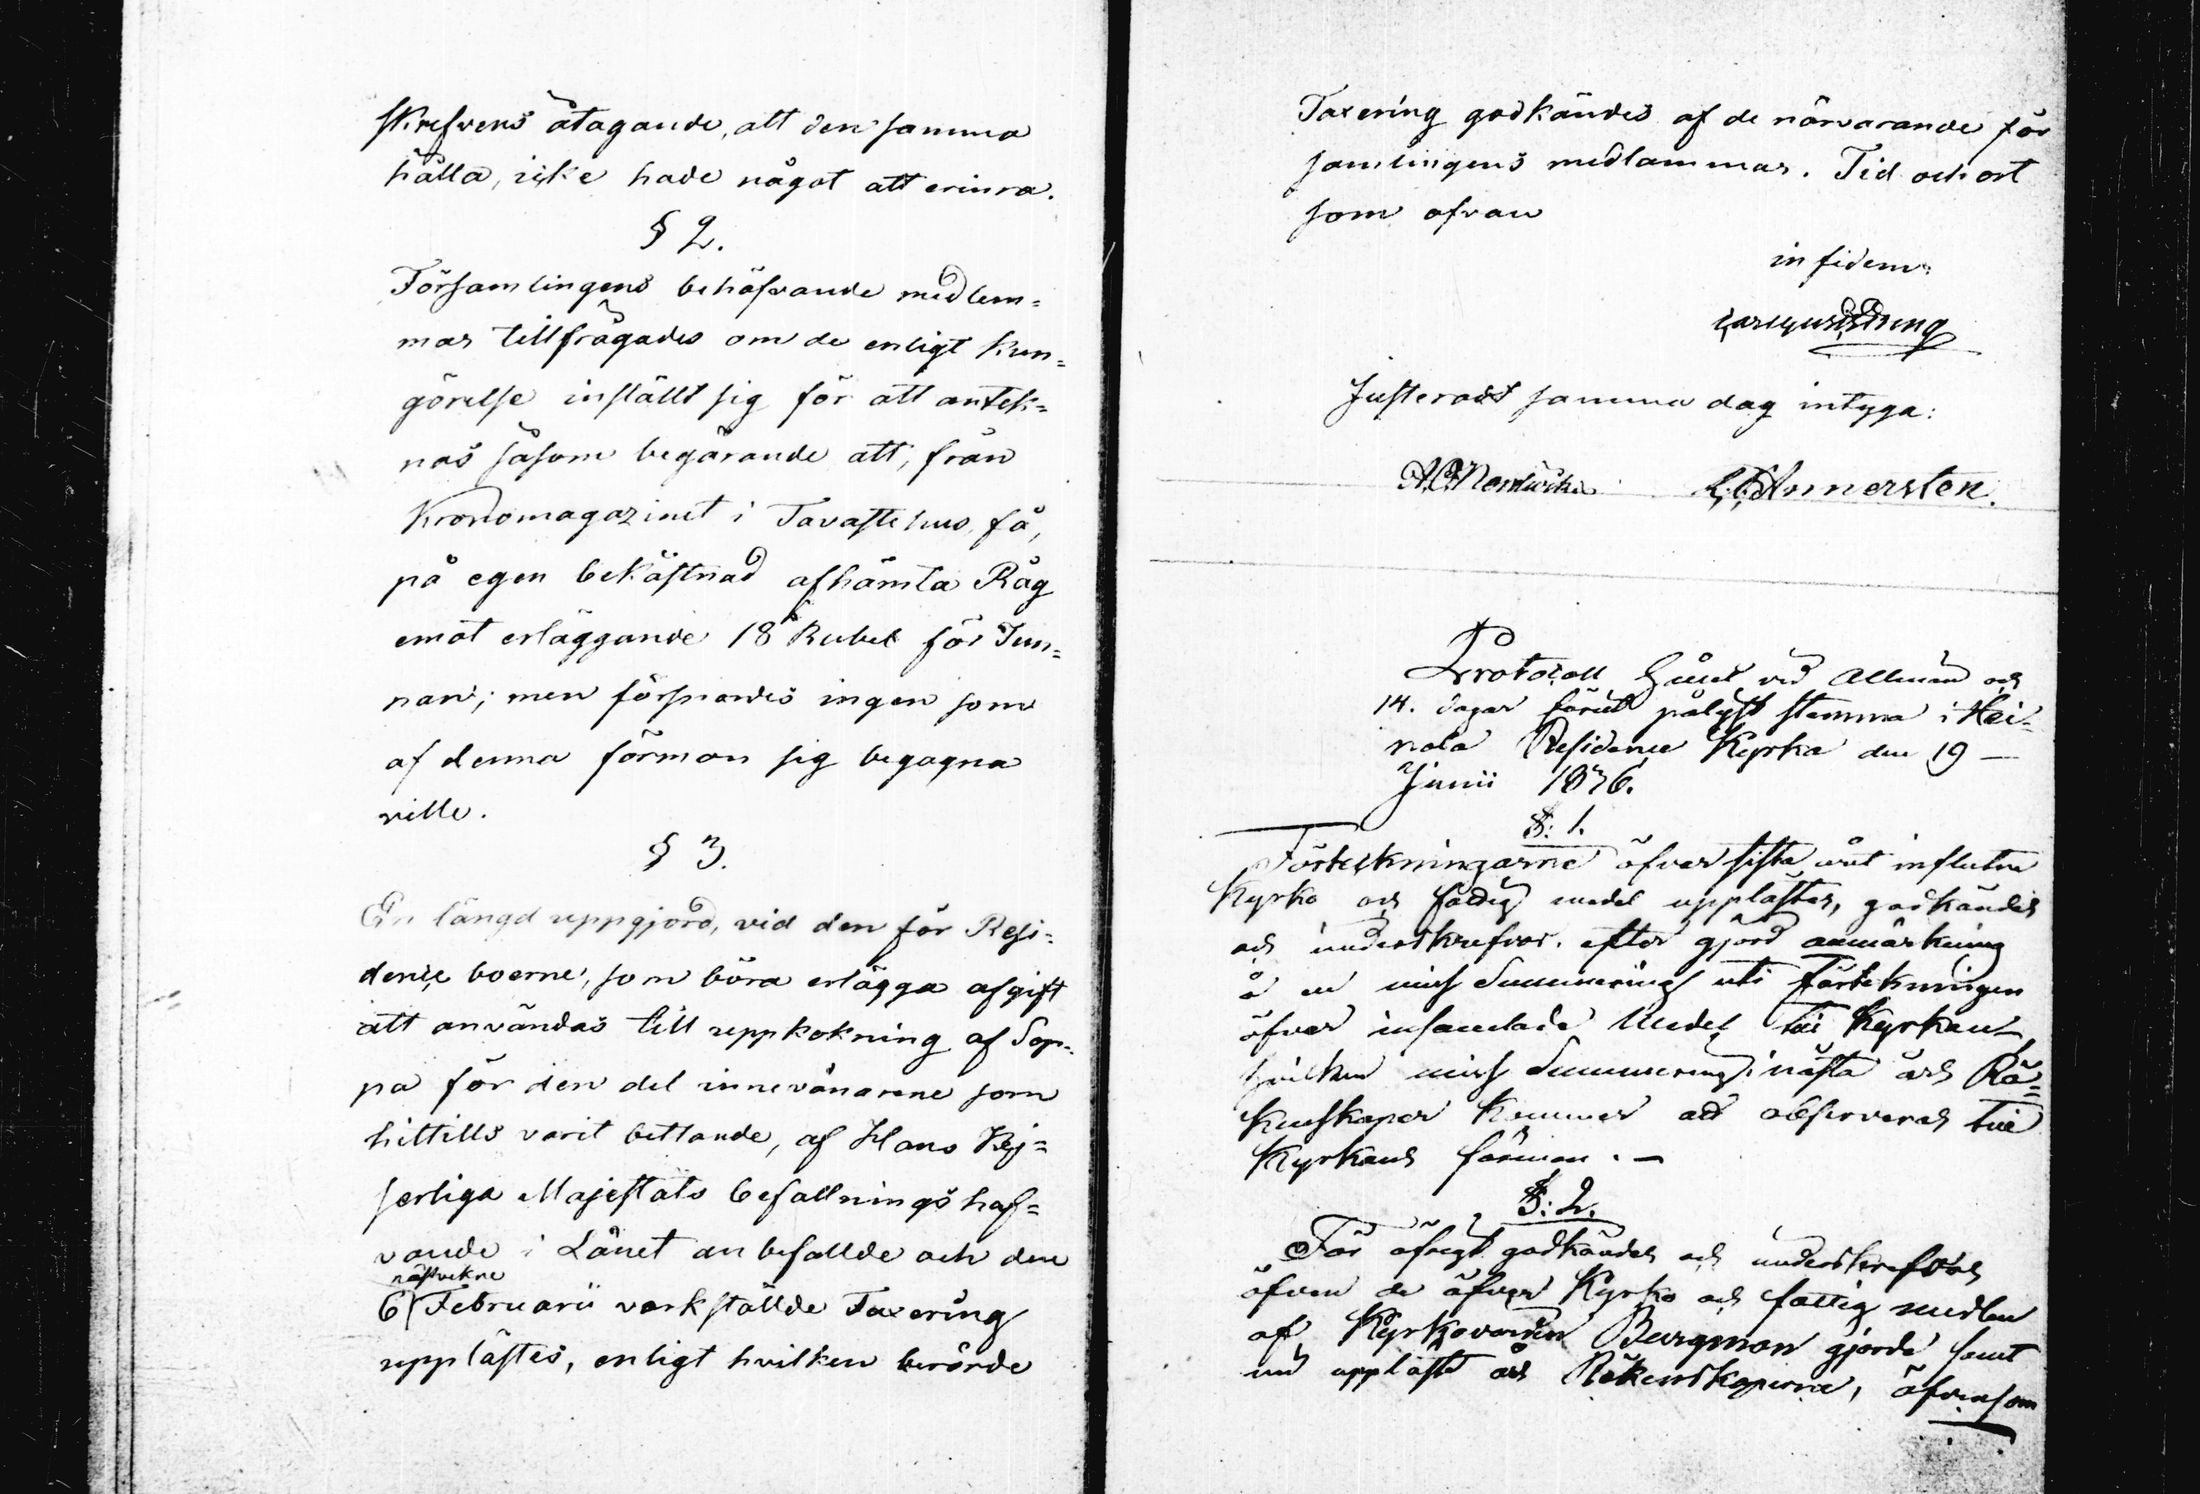 skrefvens åtagande, att densamma
hålla, icke hade något att erinra.
§ 2.
Församlingens behöfvande medlem=
mar tillfrågades om de enligt kun=
görelse inställt sig för att antek=
nas såsom begärande att, från
Kronomagazinet i Tavastehus, få,
på egen bekåstnad afhämta Råg
emot erläggande 18 Rubel för Tun=
nan; men försports ingen som
af denna förmon sig begagna
ville.
§ 3.
En längd uppgjord, vid den för Resi=
dence boerne, som böra erlägga afgift
att användas till uppkokning af Sop=
pa för den del innevånarene som
hittills varit bettlande, af Hans Kej=
serliga Majestäts befallningshaf=
vande i Länet anbefallde och den
nästvekne
6 Februarii verkställde Taxering
upplästes, enligt hvilken berörde
Taxering godkändes af de närvarande för
samlingens medlammar. Tid och ort
som ofvan
in fidem:
Justeradt samma dag intyga:
Protocoll hållet vid Allmän och
14. dagar förut pålyst stämma i Hei=
nola Residence Kyrka den 19 —
Junii 1836.
§: 1.
Förteckningarne öfver sista året influtne
Kyrko och fattig medel upplästes, godkändes
och underskrefvos, efter gjord anmärkning
å en miss Summering uti Förtekningen
öfver insamlade Medel till Kyrkan,
hvilken miss Summering i nästa års Rä=
kenskaper kommer att observeras till
Kyrkans förmon. —
§: 2.
För öfrigt godkändes och underskrefvos
äfven de öfver Kyrko och fattig medlen
af Kyrkovärden Bergman gjorde samt
nu upplästa års Räkenskaperne, äfvensom